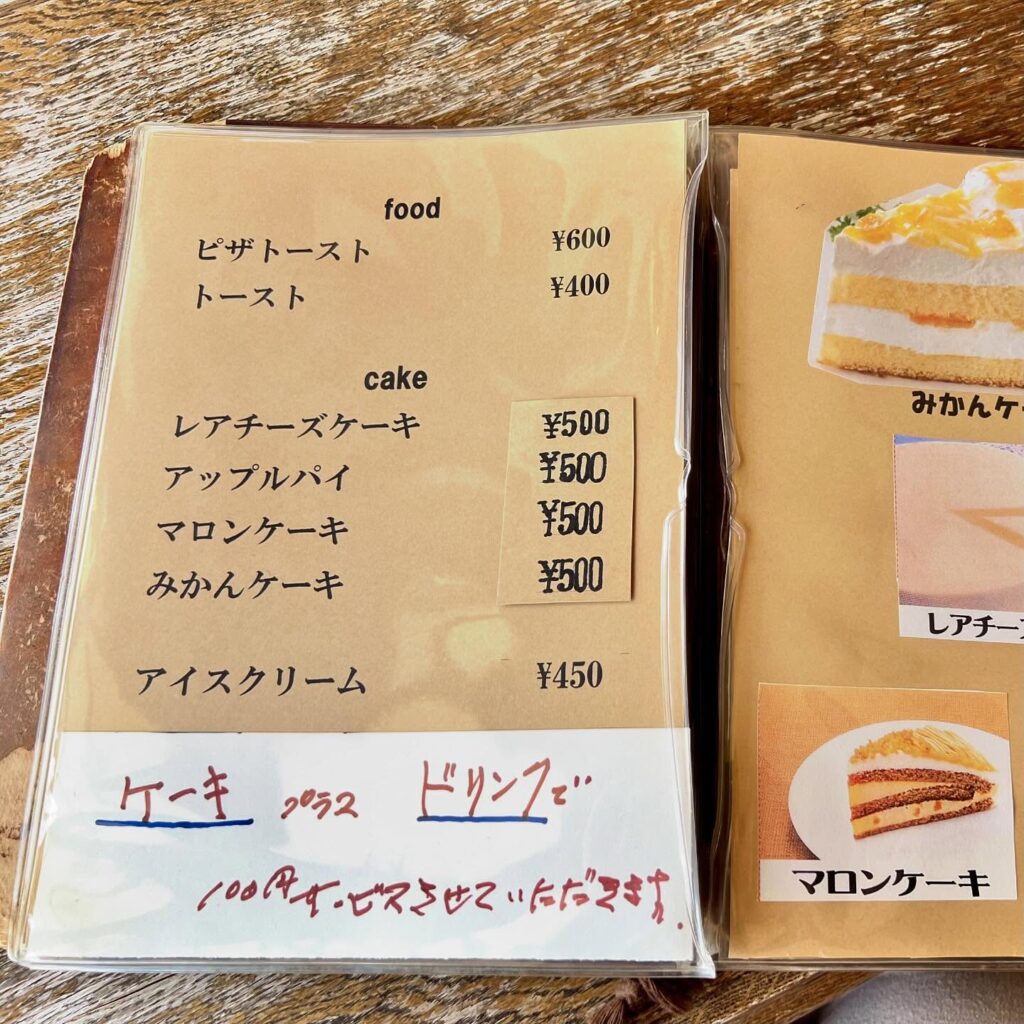 food
ピザトースト ¥600
トースト ¥400
cake
レアチーズケーキ ¥500
アップルパイ ¥500
マロンケーキ ¥500
みかんケーキ ¥500
アイスクリーム ¥450
ケーキ プラス ドリンクで
100円サービスさせていただきます。
みかんケ
レアチーズ
マロンケーキ